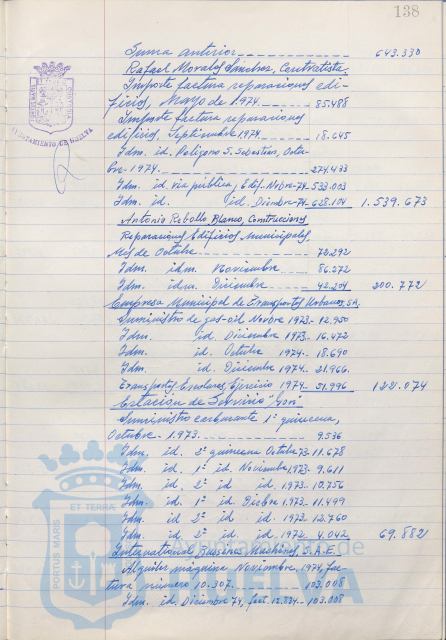 138
Suma anterior 643.330
Rafael Morales Sánchez, Contratista.
Importe factura reparaciones edi-
ficios, Mayo de 1974. 85.488
Importe factura reparaciones
edificios, Septiembre 1974. 18.645
Idm. id. Polígono S. Sebastian, Octu-
bre-1974. 274.433
Idm. id. via pública, Edif. Nobre-74 533.003
Idm. id. id. Diembre-74 628.104 1.539.673
AYUNTAMIENTO DE HUELVA
Antonio Rebollo Blanco, Construcciones
Reparaciones Edificios Municipales
Mes de Octubre 72.292
Idm. idm. Noviembre 86.272
Idm. idm. Diciembre 42.204 200.772
Empresa Municipal de Transportes Urbanos, S.A.
Suministro de gas-oil Novbre 1973- 12.950
Idm. id. Diciembre 1973- 16.472
Idm. id. Octubre 1974- 18.690
Idm. id. Diciembre 1974- 21.966
Transportes Escolares Ejercicio 1974 51.996 122.074
Estación de Servicio
Suministro carburante 1ª quincena,
Octubre-1.973. 9.536
Idm. id. 2ª quincena Octubre 73- 11.678
Idm. id. 1ª id. Noviembre 1.973- 9.611
Idm. id. 2ª id id. 1973- 10.756
Idm. id. 1ª id. Dicbre 1.973- 11.499
Idm. id. 2ª id id. 1973- 12.760
Idm. id. 2ª id id. 1972 4.042 69.882
International Bussines Machines, S.A.E.
Alquiler máquina Noviembre 1974, fac-
tura número 10.307. 103.008
Idm. id. Diciembre 74, fact. 12.884- 103.008
ET TERRA
PORTUS MARIS
Ayuntamiento de
HUELVA